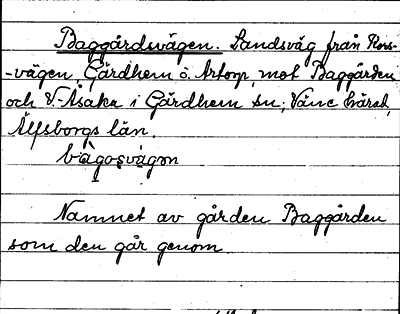 Baggårdsvägen. Landsväg från Kors-
-vägen, Gärdhem ö. Artorp, mot Baggården
och V. Åsaka i Gärdhem sn; Väne härad,
Älfsborgs län.
bàgoṣvä̀gən
Namnet av gården Baggården
som den går genom.